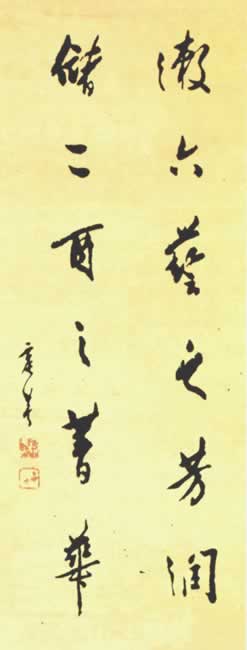 漱六藝之芳润
儲二酉之菁華